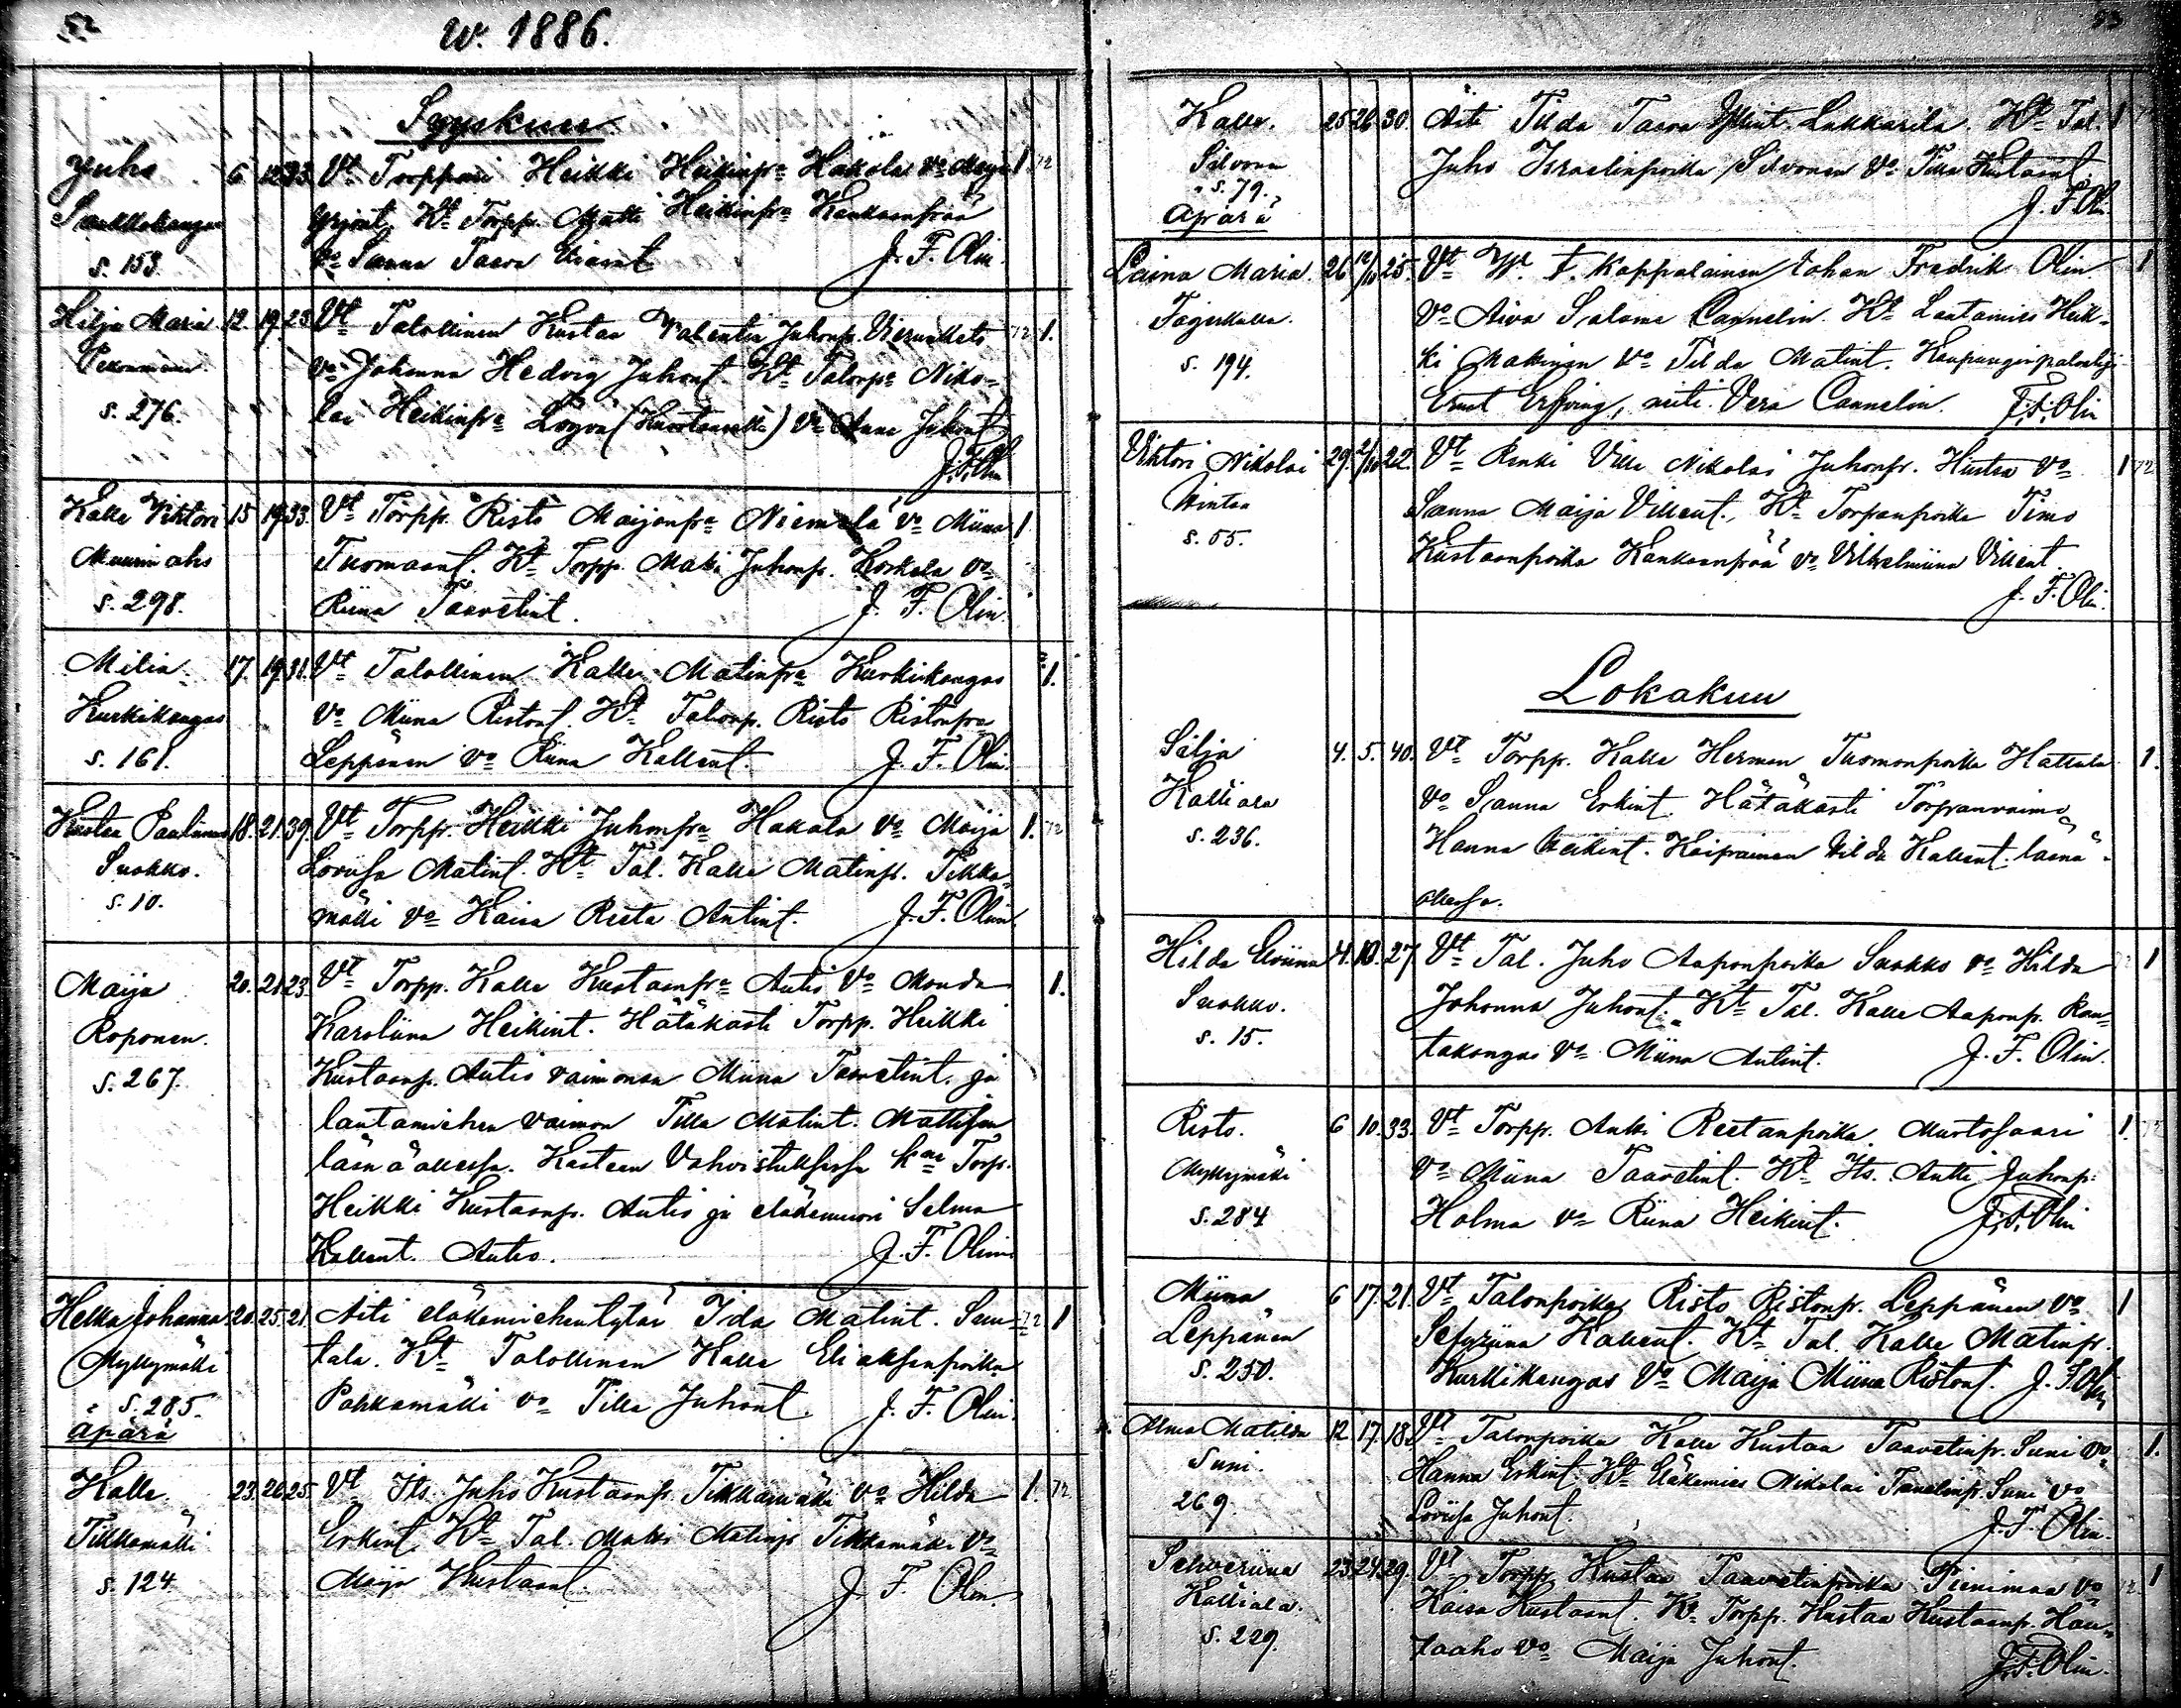 52
w. 1886.
Syyskuu
Juho 6 12 33. Vt Torppari Heikki Heikinpa Hakola vo Maija 1 72
Yrjönt. Kt Torpp. Matti Heikinpa Kankaanpää
s. 153. vo Sanna Taava J. F. Olin.
Hilja Maria 12. 19. 23. Vt Talollinen Kustaa Valentin Juhonp. 72 1.
Pekonniemi vo Johanna Hedvig Juhont. Kt Talonpa Niko-
s. 276. lai Heikinpa vo Anna Juhont.
J. F. Olin
Kalle Viktori 15 19. 33. Vt Torpp. Risto Maijanpa Niemelä vo Miina 1
Muurimaho Tuomaant. Kt Torpp. Matti Juhonp. Korkela vo
s. 298. Riina Taavetint. J. F. Olin.
Milia 17. 19. 31. Vt Talollinen Kalle Matinpa Kurkikangas 1.
Kurkikangas vo Miina Ristont. Kt Talonp. Risto Ristonpa
s. 161. Leppänen vo Riina Kallent. J. F. Olin.
Kustaa Paulinus 18. 21. 39. Vt Torppr. Heikki Juhonpa Hakala vo Maija 1. 72
Suokko. Loviisa Matint. Kt Tal. Kalle Matinp. Tikka-
s. 10. mäki vo Kaisa Reeta Antint. J. F. Olin.
Maija 20. 21. 23. Vt Torpp. Kalle Kustaanpa Autio vo Manda 1.
Roponen. Karoliina Heikint. Hätäkasti Torpp. Heikki
s. 267. Kustaanp. Autio vaimonsa Miina Taavetint. ja
lautamiehen vaimon Tilla Matint.
läsnä ollessa. Kasteen Vahvistuksessa Torp.
Heikki Kustaanp. Autio ja Selma
Kallent. Autio. J. F. Olin
Helka Johanna 20. 25. 21. Äiti eläkemiehentytär Ida Matint. Sau- 72 1
Myllymäki tala. Kt Talollinen Kalle Eliaksenpoika
s. 285. Pahkamäki vo Tilla Juhont. J. F. Olin.
äpärä
Kalle 23. 26. 25. Vt Its. Juho Kustaanp. Tikkamäki vo Hilda 1. 72
Tikkamäki Erkint. Kt Tal. Matti Matinp Tikkamäki vo
s. 124. Maija Kustaant. J. F. Olin.
53
Kalle. 25 26 30. Äiti Tilda Taava Lukkarila. Kt Tal. 1 72
Silvonen Juho Israelinpoika Silvonen vo Tilla Kustaant.
s. 79. J. F. Ol.
äpärä
Laina Maria. 26 10/10 25. Vt W. t. Kappalainen Johan Fredrik Olin 1
Fagerkulla. vo Aiva Saloma Cannelin. Kt Lautamies Heik-
s. 194. ki Makinen vo Tilda Matint. Kaupunginpalvelija
Ernst Erfving, neiti Vera Cannelin. J. F. Olin
Viktori Nikolai 29. 2/10 22. Vt Renki Ville Nikolai Juhonp. Hintsa vo 1 72
Hintsa Sanna Maija Villent., Kt Torpanpoika Timo
s. 55. Kustaanpoika Kankaanpää vo Vilhelmiina Villent.
J. F. Olin.
Lokakuu
Silja 4. 5. 40. Vt Torpp. Kalle Herman Tuomonpoika Hattula 1.
Kalliala vo Sanna Erkint. Hätäkasti Torpanvaimo
s. 236. Hanna Heikint. Kaipainen Hilda Kallent. läsnä
ollessa.
Hilda Eviina 4. 10. 27 Vt Tal. Juho Aaponpoika Suokko vo Hilda 1
Suokko. Johanna Juhont. Kt Tal. Kalle Aaponp. Rau-
s. 15. takangas vo Miina Antint. J. F. Olin.
Risto. 6 10. 33. Vt Torpp. Antti Reetanpoika Murtosaari 1. 72
Myllymäki vo Miina Taavetint. Kt Its. Antti Juhonp.
s. 284 Holma vo Riina Heikint. J. F. Olin
Miina 6 17. 21. Vt Talonpoika Risto Ristonp. Leppänen vo 1
Leppänen Sefyriina Kallent. Kt Tal. Kalle Matinp.
s. 250. Kurkikangas vo Maija Miina Ristont. J. F. Olin
Alma Matilda 12 17. 18. Vt Talonpoika Kalle Kustaa Taavetinp. Suni vo 1.
Suni. Hanna Erkint. Kt Eläkemies Nikolai Taavetinp. Suni vo
269. Loviisa Juhont. J. F. Olin.
Sehveriina 23. 24. 29. Vt Torpp. Kustaa Taavetinpoika Pienimaa vo 72 1
Kalliala. Kaisa Kustaant. Kt Torpp. Kustaa Kustaanp. Hau-
s. 229. taaho vo Maija Juhont.
J. F. Olin.